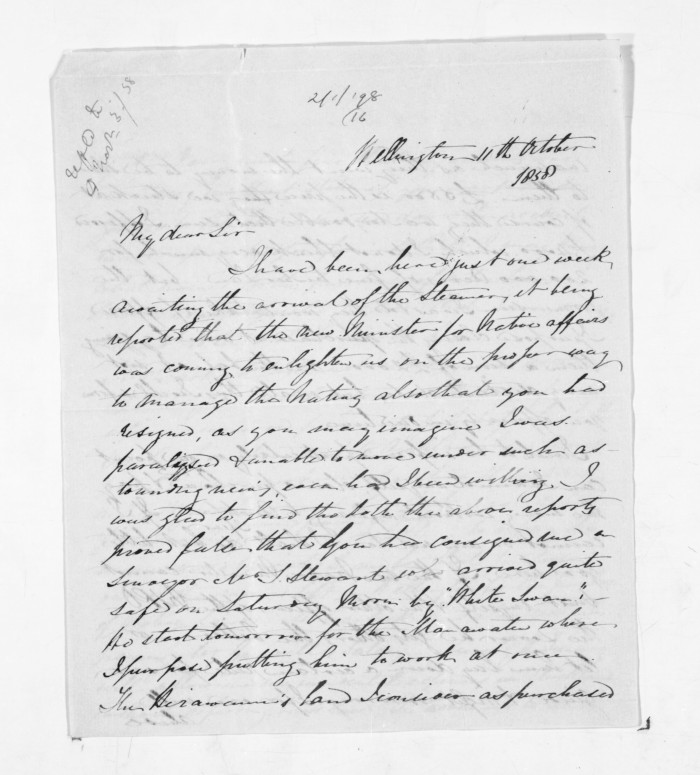 21/1/198
/16
Wellington 11th October
1858
My dear Sir
I have been here just one week,
awaiting the arrival of the Steamer, it being
reported that the new Minister for Native affairs
was coming to enlighten us on the proper way
to manage the Natives also that you had
resigned, as you may imagine I was
paralysed & unable to move under such as-
tounding news, even had I been willing. I
was glad to find tho both the above reports
proved false & that you had consigned me a
Surveyor Mr J Stewart who arrived quite
safe on Saturday Morng by "White Swan". -
He starts tomorrow for the Manawatu where
I purpose putting him to work at once.
The Hirawanu's land I consider as purchased